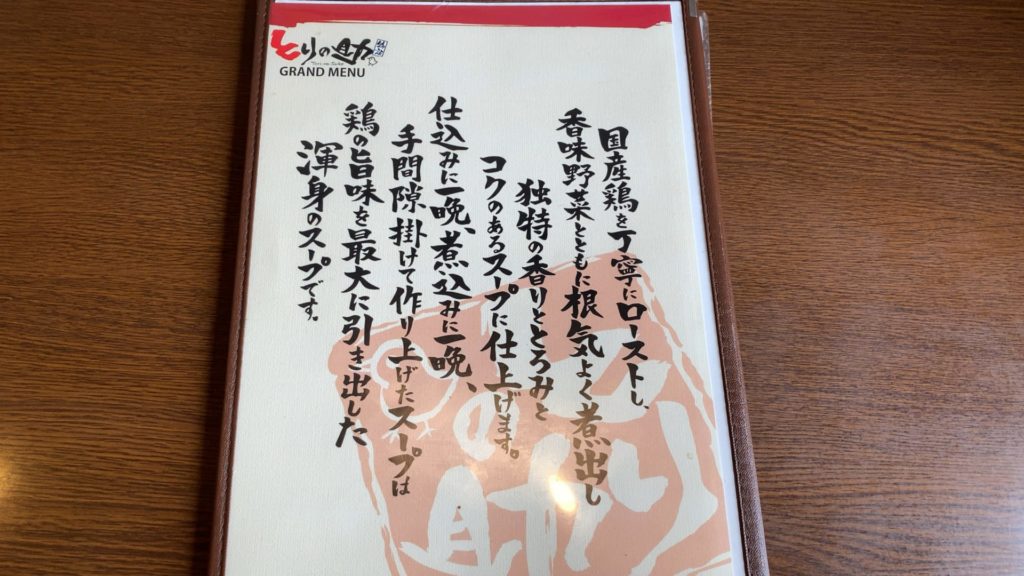 とりの助
GRAND MENU
国産鶏を丁寧にローストし、
香味野菜とともに根気よく煮出し
独特の香りととろみと
コクのあるスープに仕上げます。
仕込みに一晩、煮込みに一晩、
手間隙掛けて作り上げたスープは
鶏の旨味を最大に引き出した
渾身のスープです。